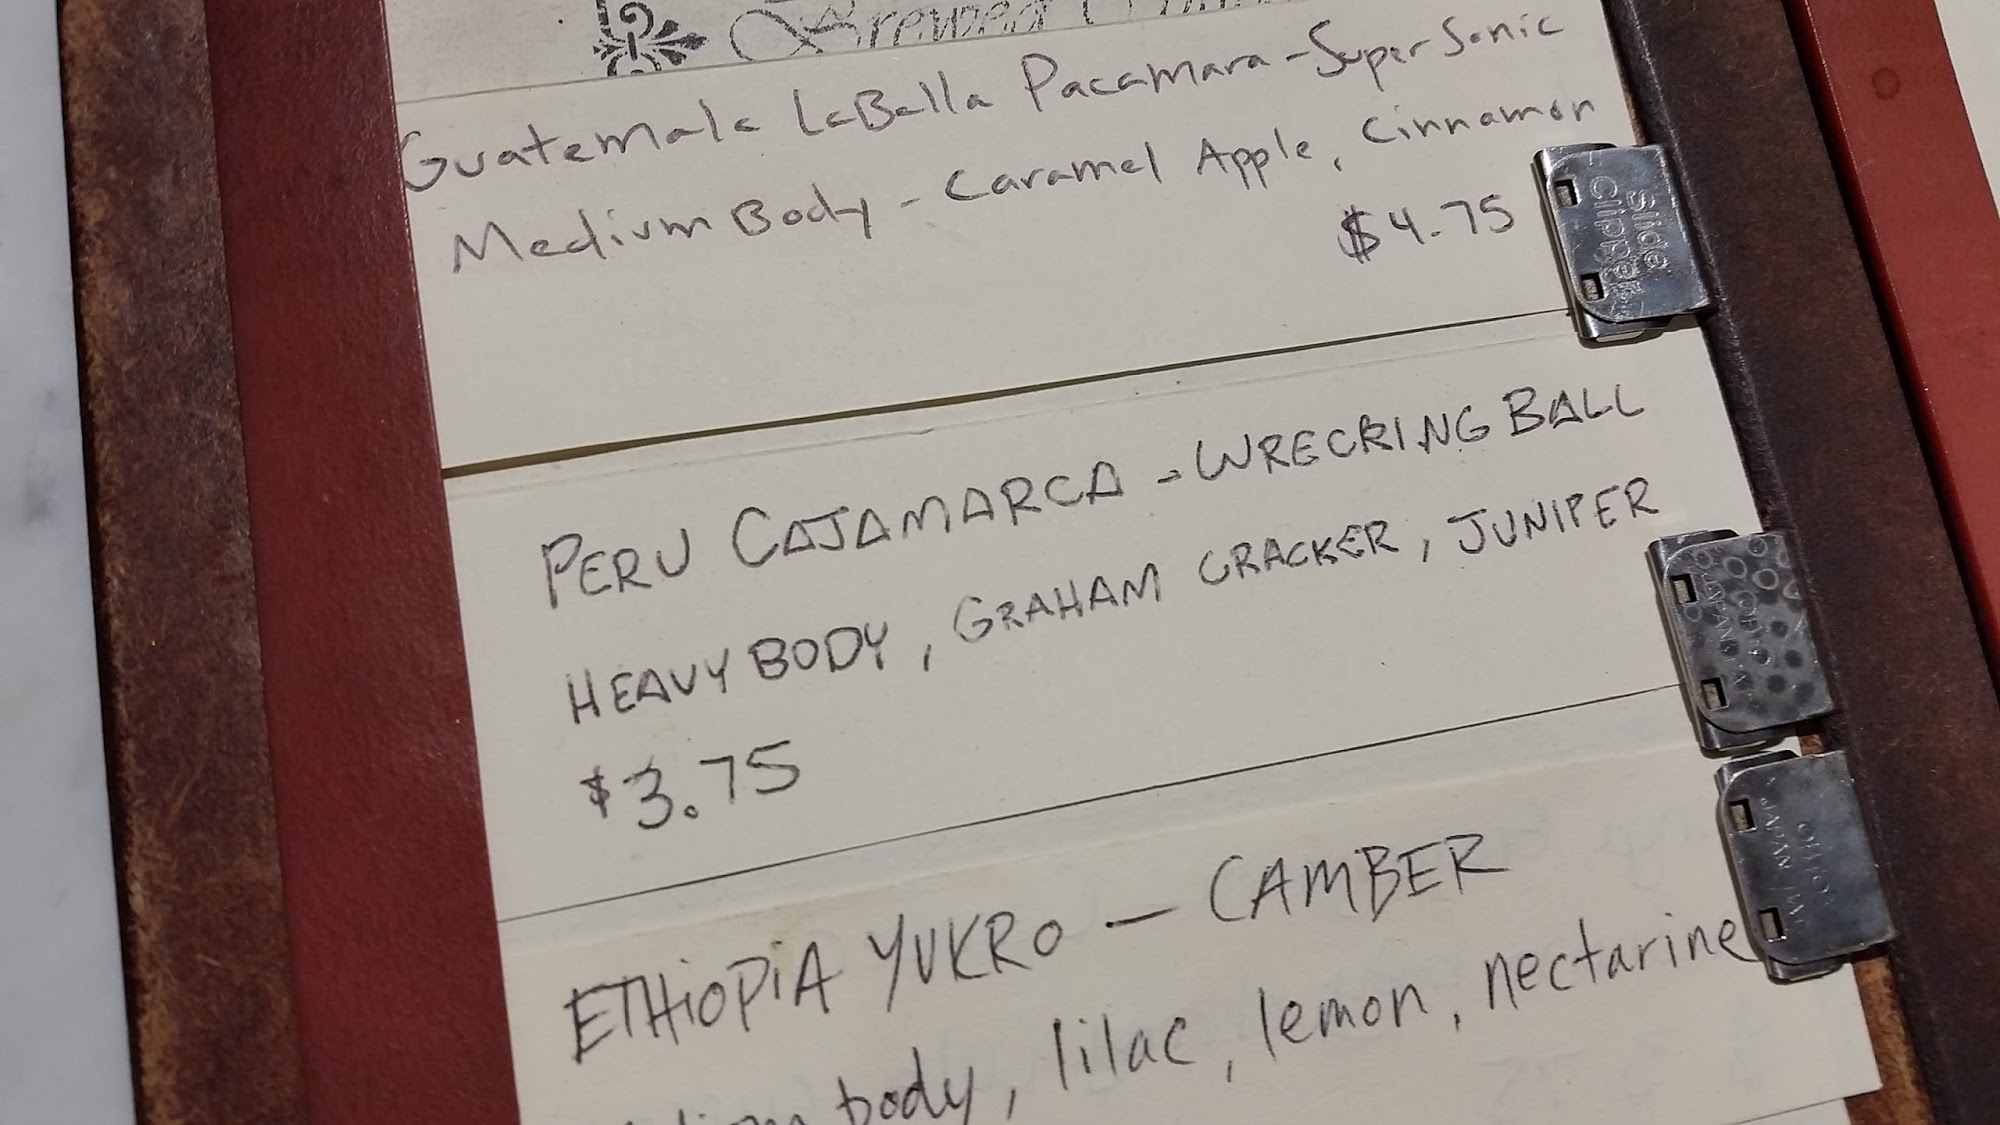 Brewed
Guatemala LaBella Pacamara - Super Sonic
Medium Body - Caramel Apple, Cinnamon
$4.75
Slide
Clipper
PERU CAJAMARCA - WRECKING BALL
HEAVY BODY, GRAHAM CRACKER, JUNIPER
$3.75
OHTO
JAPAN PAT
ETHIOPIA YUKRO - CAMBER
body, lilac, lemon, nectarine
OHTO
JAPAN PAT